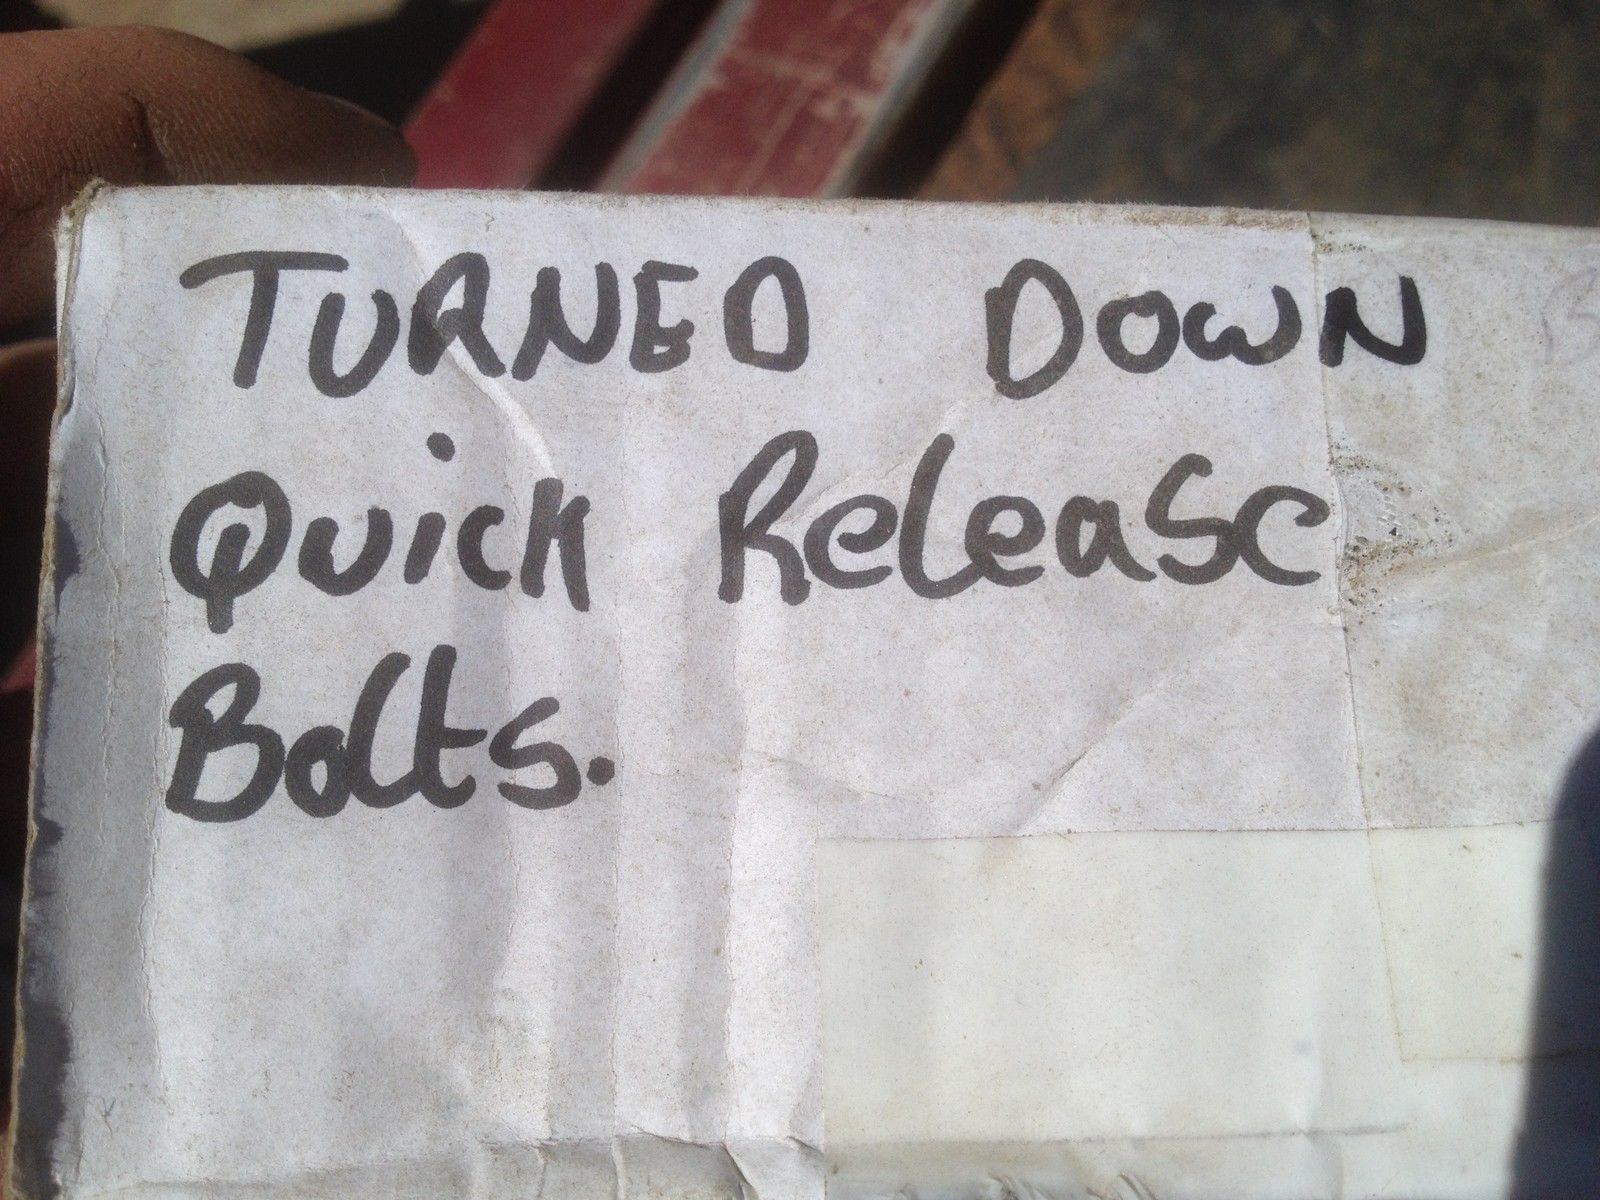 TURNED DOWN
Quick Release
Bolts.